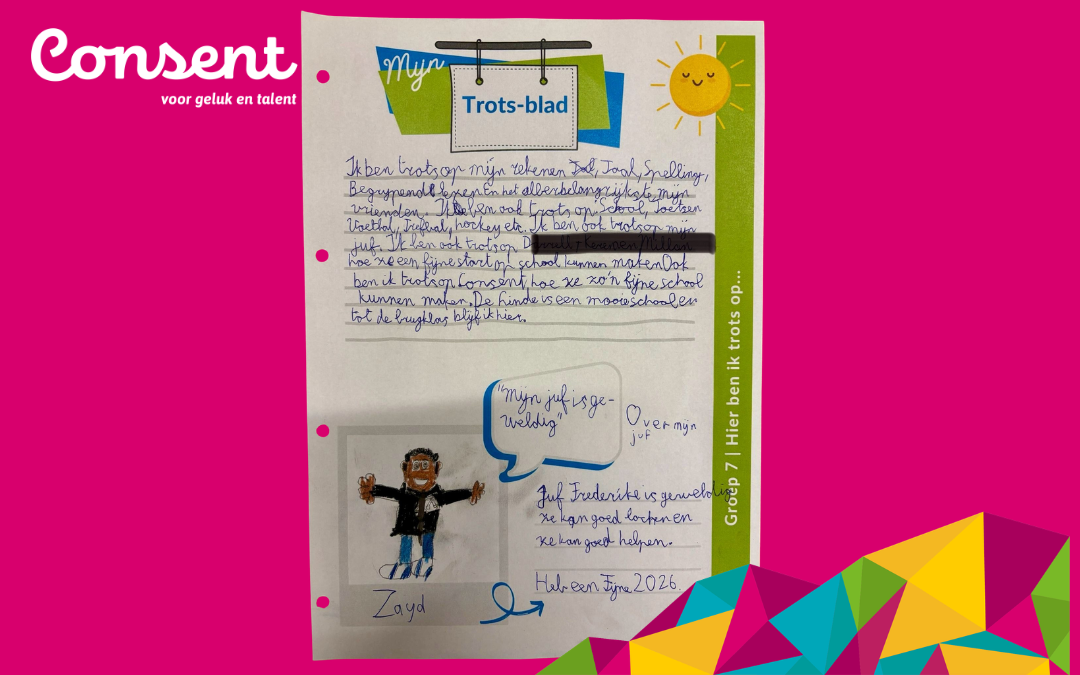 Consent
voor geluk en talent
Mijn
Trots-blad
Ik ben trots op mijn rekenen, Taal, Spelling,
Begrypendt lezen En het allerbelangrijkste mijn
vrienden. Ik ben ook trots op School, Toetsen
Voetbal, Trefbal, hockey etc. Ik ben ook trots op mijn
juf. Ik ben ook trots op
hoe ze een fijne start op school kunnen maken Ook
ben ik trots op Consent, hoe ze zo'n fijne school
kunnen maken. De Linde is een mooie school en
tot de brugklas blijf ik hier.
"Mijn juf is ge-
weldig"
Over mijn
juf
Juf Frederike is geweldig
ze kan goed
ze kan goed helpen.
Heb een Fijne 2026.
Zayd
Groep 7 | Hier ben ik trots op...